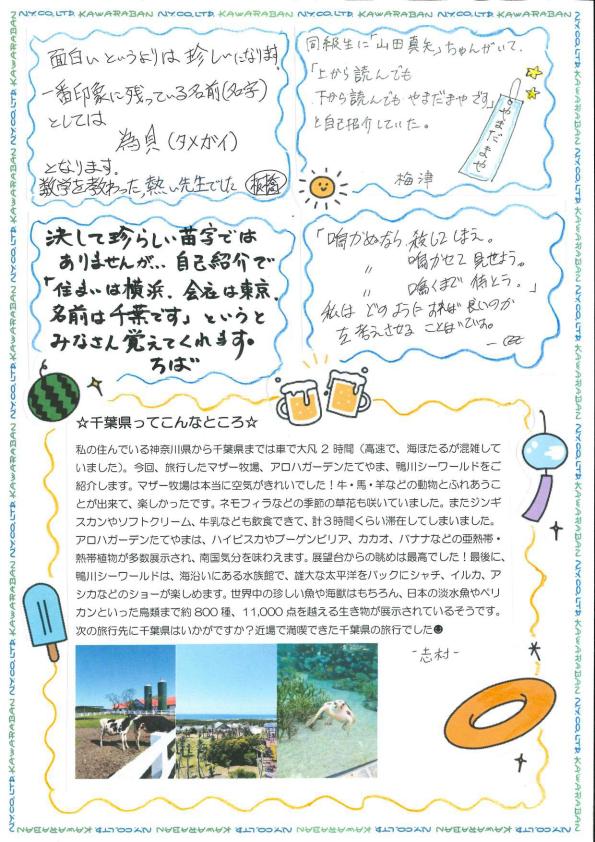 NY.CO.,LTD. KAWARABAN
面白いというよりは珍しいになります。
一番印象に残っている名前(名字)
としては
為貝(タメガイ)
となります。
数学を教わった熱い先生でした 板橋
同級生に「山田真矢」ちゃんがいて、
「上から読んでも
下から読んでもやまだまやです」
と自己紹介していた。
やまだまや
梅津
決して珍らしい苗字では
ありませんが、、自己紹介で
「住まいは横浜、会社は東京、
名前は千葉です」というと
みなさん覚えてくれます。
ちば
「鳴かぬなら 殺してしまえ。
〃 鳴かせて見せよう。
〃 鳴くまで待とう。」
私はどのようにすれば良いのか
を考えさせることばです。
☆千葉県ってこんなところ☆
私の住んでいる神奈川県から千葉県までは車で大凡2時間（高速で、海ほたるが混雑して
いました）。今回、旅行したマザー牧場、アロハガーデンたてやま、鴨川シーワールドをご
紹介します。マザー牧場は本当に空気がきれいでした！牛・馬・羊などの動物とふれあうこ
とが出来て、楽しかったです。ネモフィラなどの季節の草花も咲いていました。またジンギ
スカンやソフトクリーム、牛乳なども飲食できて、計3時間くらい滞在してしまいました。
アロハガーデンたてやまは、ハイビスカやブーゲンビリア、カカオ、バナナなどの亜熱帯・
熱帯植物が多数展示され、南国気分を味わえます。展望台からの眺めは最高でした！最後に、
鴨川シーワールドは、海沿いにある水族館で、雄大な太平洋をバックにシャチ、イルカ、ア
シカなどのショーが楽しめます。世界中の珍しい魚や海獣はもちろん、日本の淡水魚やペリ
カンといった鳥類まで約800種、11,000点を越える生き物が展示されているそうです。
次の旅行先に千葉県はいかがですか？近場で満喫できた千葉県の旅行でした☻
-志村-